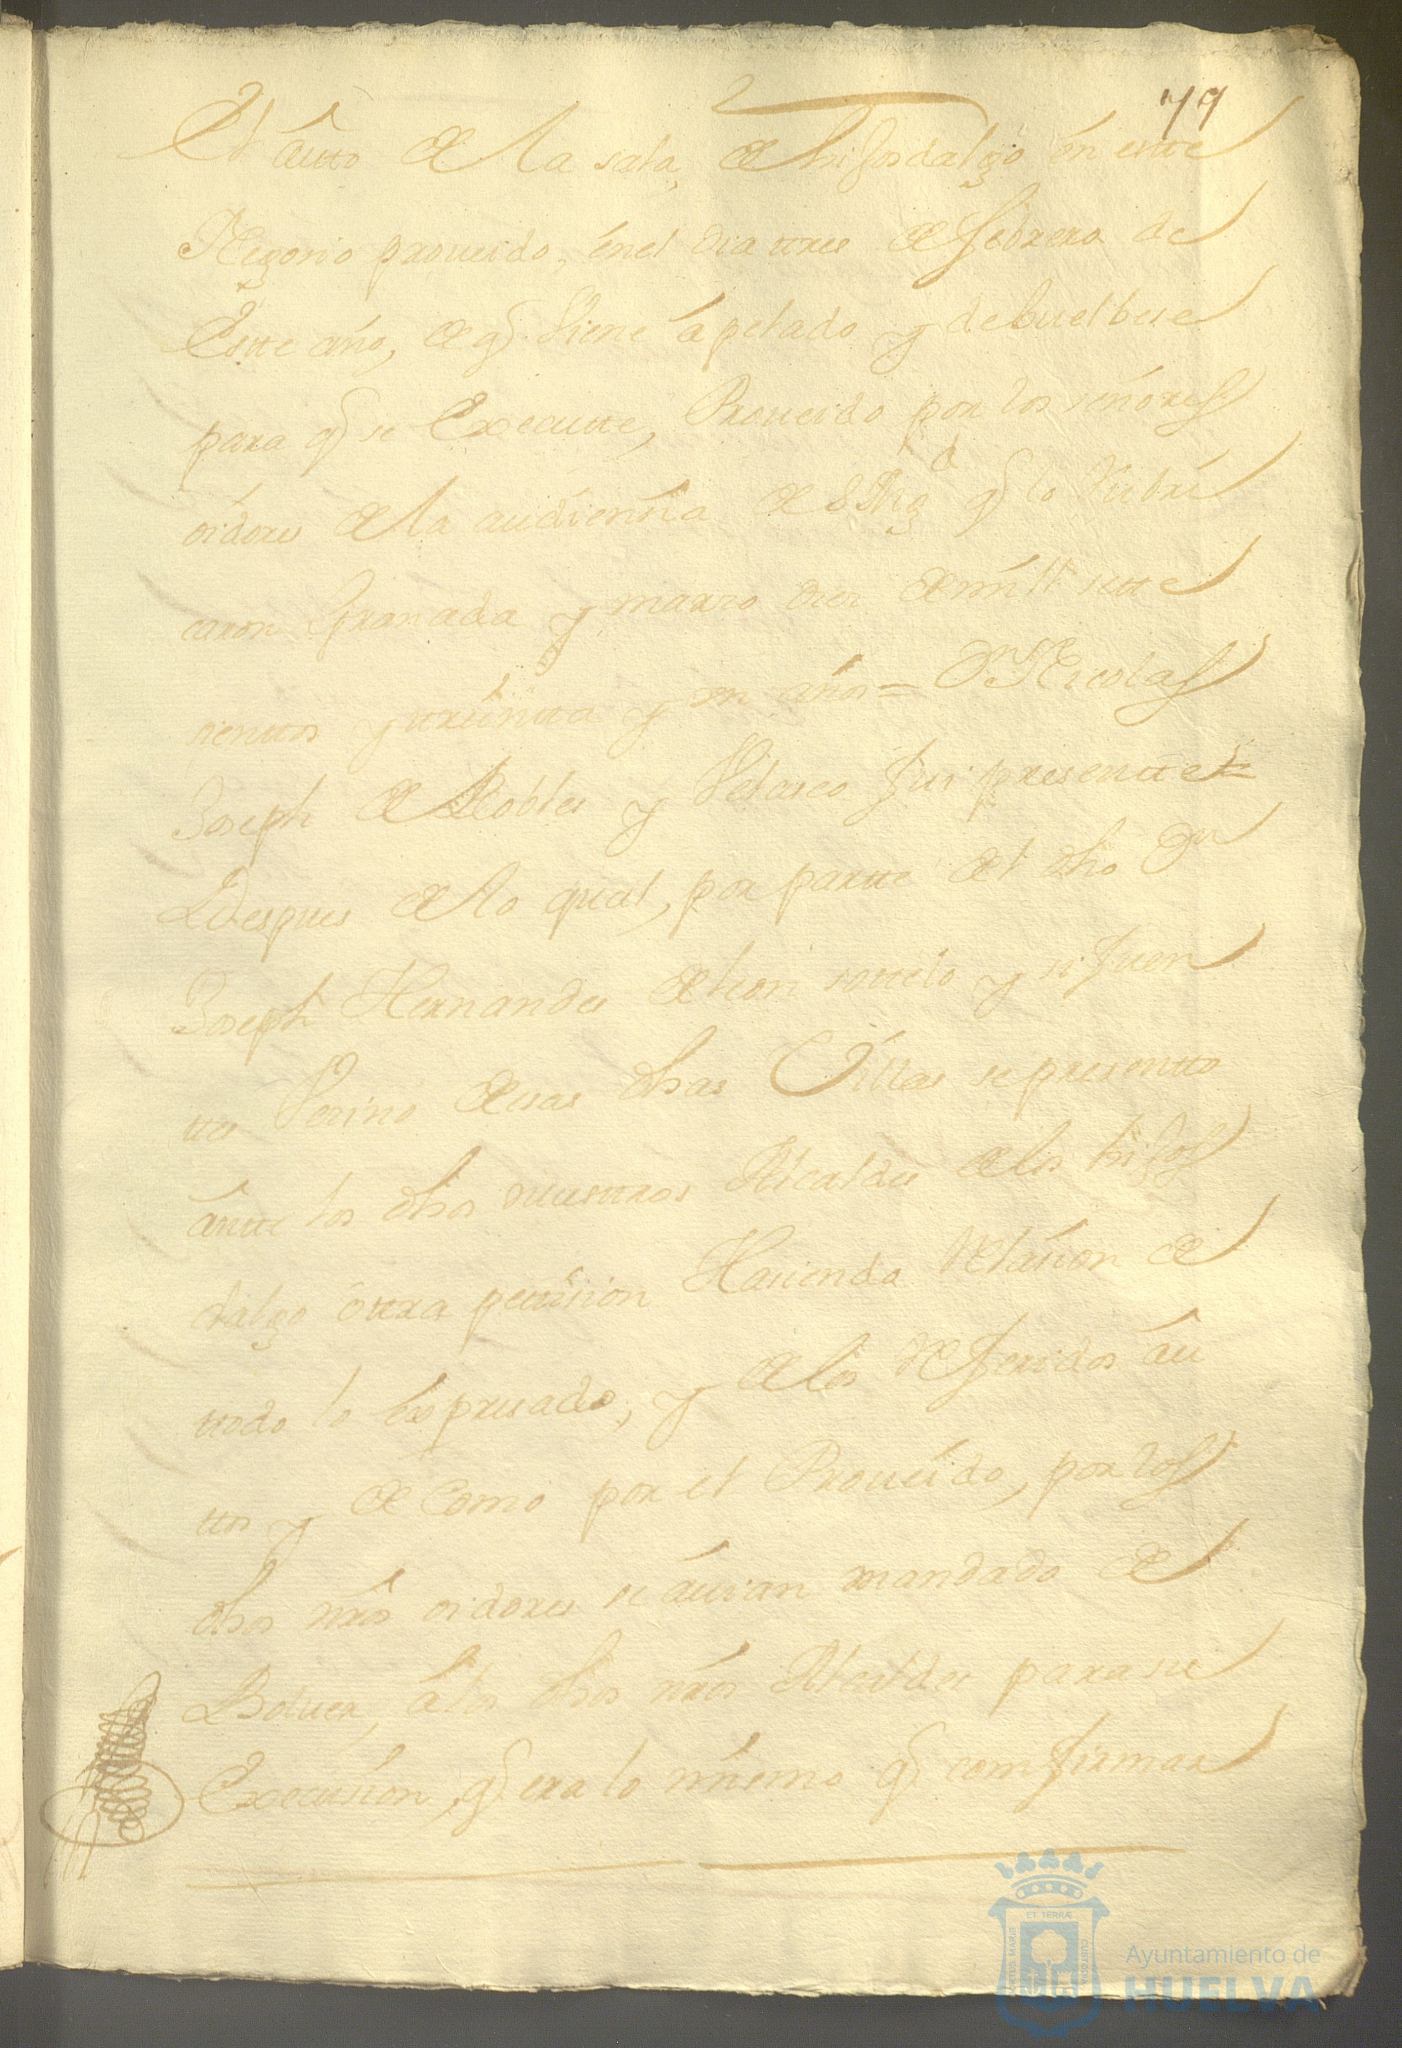 79
El auto de la sala de hijosdalgo en este
Negozio proueido, en el dia ttres de febrero de
Este año, de q̃ Viene apelado y debuelbese
para q̃ se Execute, Proueido por los señores
oidores de la audienzia de S Mgd q̃ lo rubri
caron Granada y marzo diez de mill sette
zienttos y ttreintta y un años = Dn Nicolas
Joseph de Robles y Velasco fui presentte =
Y Despues de lo qual, por partte del dho Dn
Joseph Hernandes de leon sottelo y sifuen
ttes Vezino de esas dhas Villas se presentto
ante los dhos nuestros Alcaldes de los hijos
dalgo ottra pettizion Haziendo Relazion de
ttodo lo Expresado, y de los Referidos au
ttos y de como por el Proueido, por los
dhos nros oidores se auian mandado de
Boluer, a los dhos nros Alcaldes para su
Execuzion, q̃ era lo mismo q̃ comfirmar
Ayuntamiento de
HUELVA